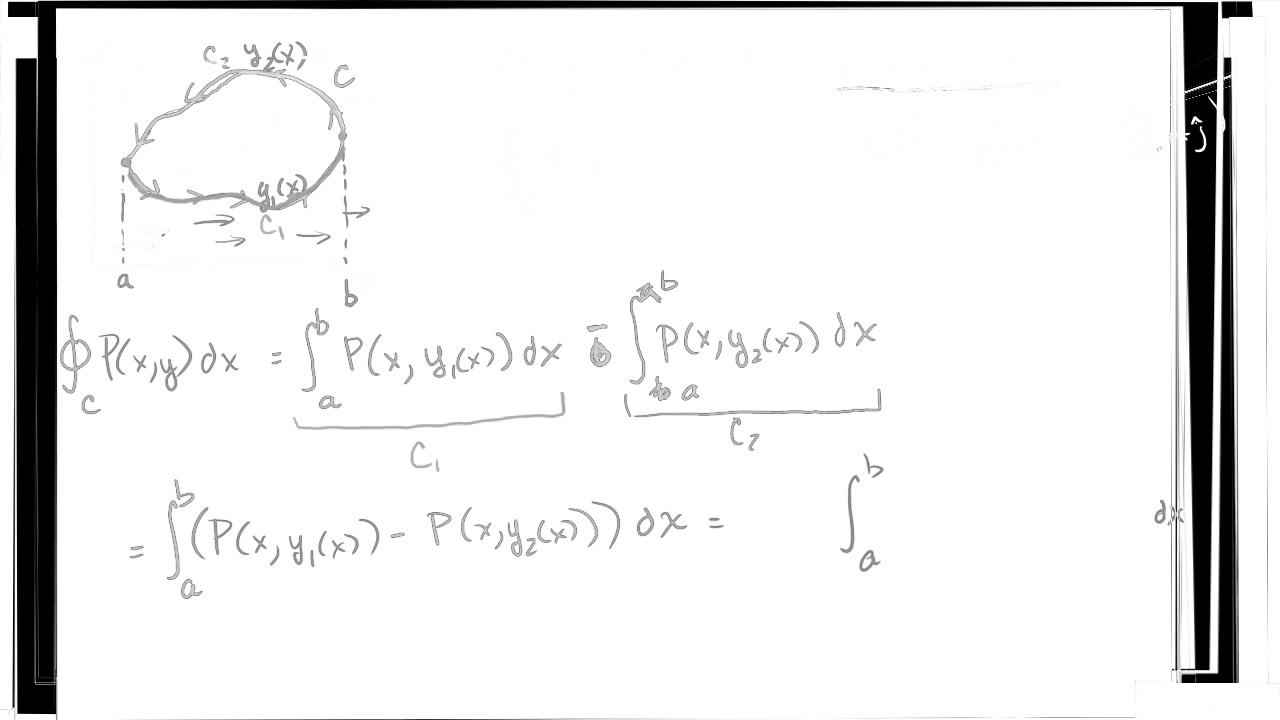 C₂ y₂(x)
C
y₁(x)
C₁
a
b
∮_C P(x,y) dx = ∫_a^b P(x, y₁(x)) dx - ∫_a^b P(x, y₂(x)) dx
C₁
C₂
= ∫_a^b (P(x, y₁(x)) - P(x, y₂(x))) dx = ∫_a^b dx
ĵ)